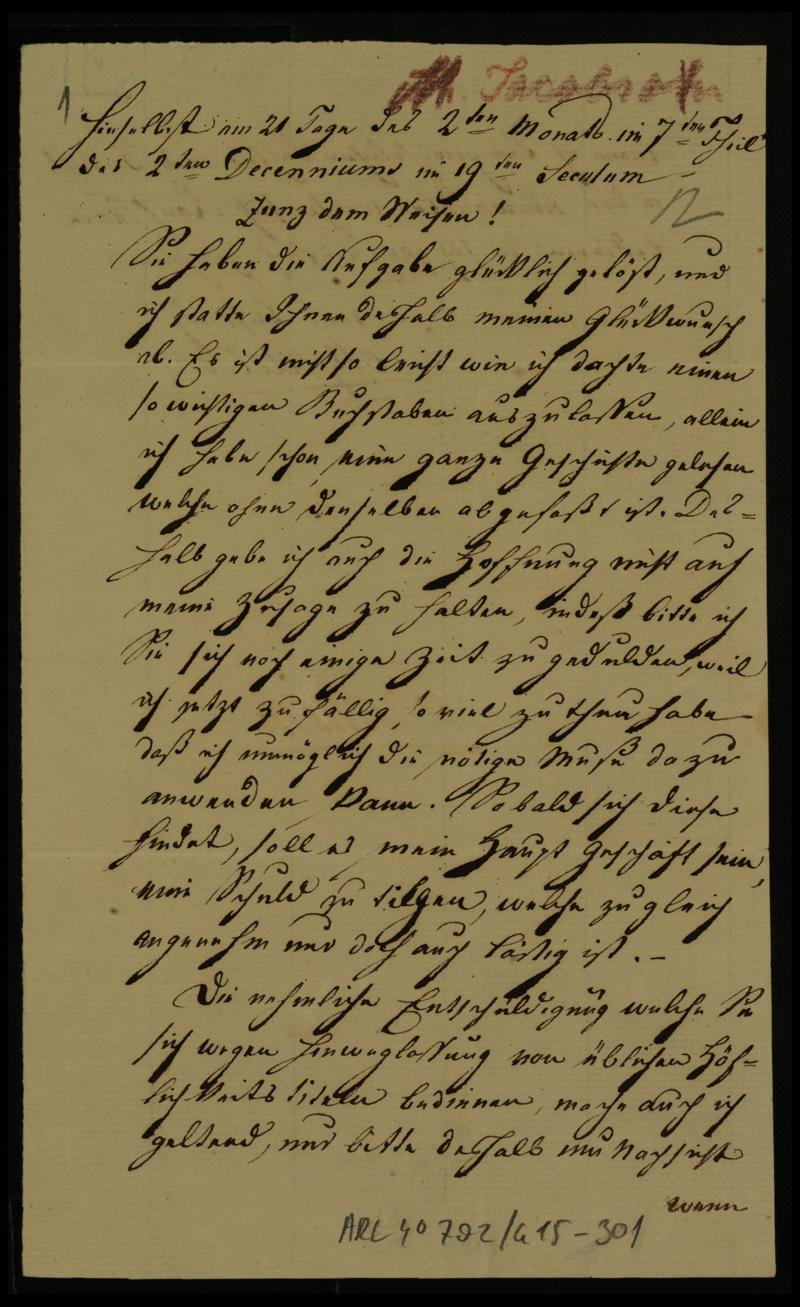 M. Jacobsohn
1
Hieselbst am 21 Tage des 2ten Monats im 7ten Theil
des 2ten Decenniums im 19ten Seculum
12
Zunz dem Weisen!
Sie haben die Aufgabe glücklich gelöst, und
ich statte Ihnen deshalb meinen Glückwunsch
ab. Es ist nicht so leicht wie ich dachte einen
so wichtigen Buchstaben auszulassen, allein
ich habe schon eine ganze Geschichte gelesen
welche ohne denselben abgefaßt ist. Des=
halb gebe ich auch die Hoffnung nicht auf
meine Zusage zu halten, indeß bitte ich
Sie sich noch einige Zeit zu gedulden, weil
ich jetzt zufällig so viel zu thun habe
daß ich unmöglich die nötige Muße dazu
anwenden kann. Sobald sich diese
findet, soll es mein Haupt Geschäft sein,
eine Schuld zu tilgen, welche zugleich
angenehm und doch auch lästig ist. –
Die nehmliche Entschuldigung welche Sie
sich wegen Hinweglassung von üblichen Höf=
lichkeits titeln bedienen, mache auch ich
geltend, und bitte deshalb um Nachsicht
wenn
ARC 40 792/G15-301